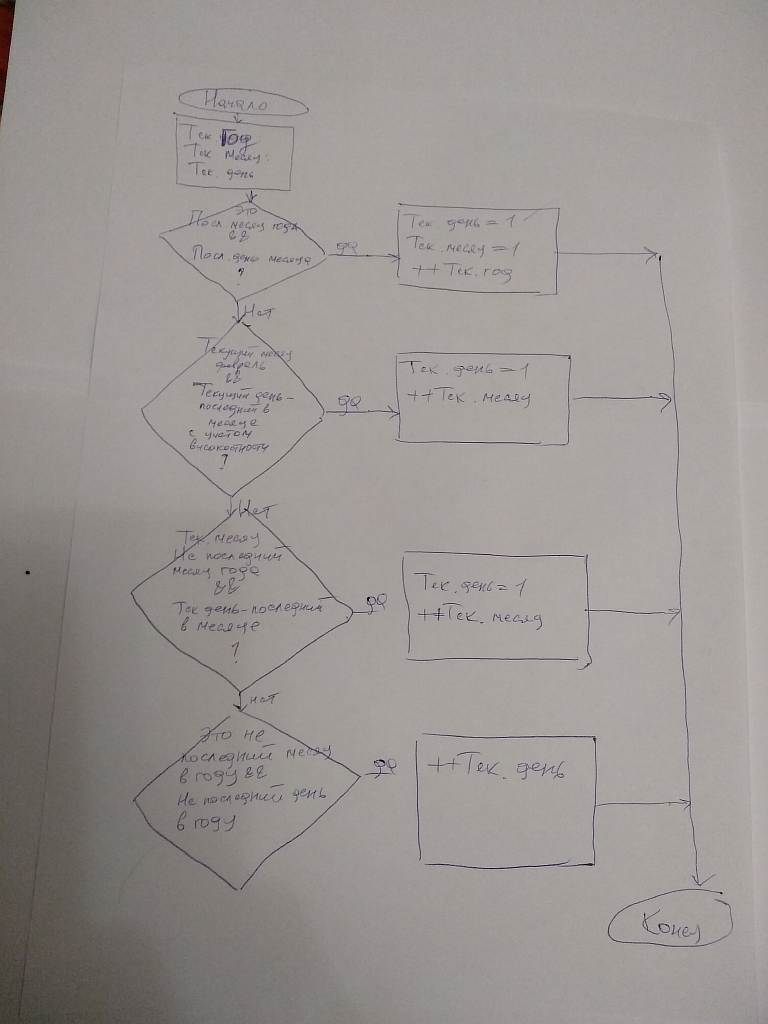 Начало
Тек. Год
Тек. месяц.
Тек. день
Это
Посл. месяц года
&&
Посл. день месяца
?
да
Тек. день = 1
Тек. месяц = 1
++Тек. год
Нет
Текущий месяц
февраль
&&
Текущий день -
последний в
месяце
с учетом
високостности
?
да
Тек. день = 1
++Тек. месяц
Нет
Тек. месяц
Не последний
месяц года
&&
Тек день - последний
в месяце
?
да
Тек. день = 1
++Тек. месяц
нет
Это не
последний месяц
в году &&
Не последний день
в году
да
++Тек. день
Конец